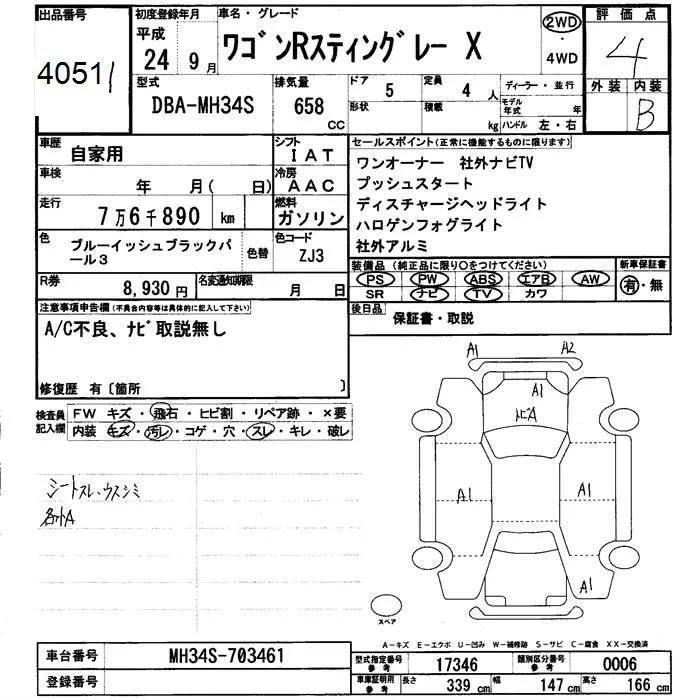 出品番号
4051
初度登録年月
平成
24 9月
車名・グレード
ワゴンRスティングレー X
2WD
4WD
評価点
4
外装 内装
B
型式
DBA-MH34S
排気量
658
CC
ドア
5
定員
4 人
形状
積載
kg
ディーラー・並行
モデル年式 年
ハンドル 左・右
車歴
自家用
シフト
IAT
車検
年 月( 日)
冷房
AAC
走行
7万6千890 km
燃料
ガソリン
色
ブルーイッシュブラックパール3
色替
色コード
ZJ3
R券
8,930円
名変通知期限
月 日
セールスポイント(正常に機能するものに限ります)
ワンオーナー 社外ナビTV
プッシュスタート
ディスチャージヘッドライト
ハロゲンフォグライト
社外アルミ
装備品(純正品に限り○をつけてください)
PS PW ABS エアB AW
SR ナビ TV カワ
新車保証書
有・無
後日品
保証書・取説
注意事項申告欄(不具合内容等は具体的に記入して下さい)
A/C不良、ナビ取説無し
修復歴 有〔箇所 〕
検査員記入欄
FW キズ・飛石・ヒビ割・リペア跡・×要
内装 キズ・汚レ・コゲ・穴・スレ・キレ・破レ
シートスレ・ウスシミ
各外A
A1 A2
A1
トビA
A1
A1
A1
スペア
A-キズ E-エクボ U-凹み W-補修跡 S-サビ C-腐食 XX-交換済
車台番号
MH34S-703461
登録番号
型式指定番号
参考
17346
類別区分番号
参考
0006
車庫証明用
参考
長さ 339 cm
幅 147 cm
高さ 166 cm